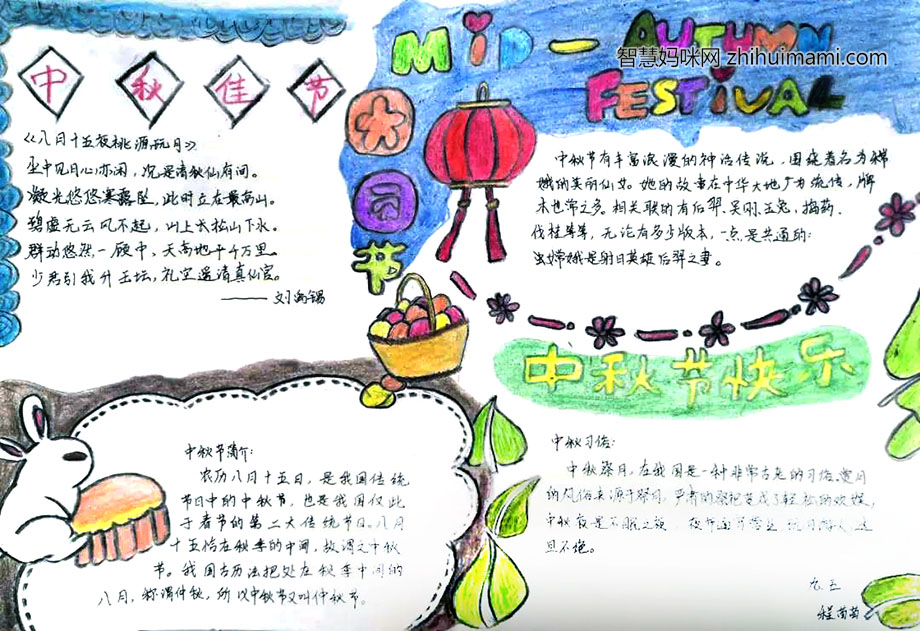 MiD-AUTUMN
FESTiVAL
智慧妈咪网 zhihuimami.com
中秋佳节
《八月十五夜桃源玩月》
尘中见月心亦闲，况是清秋仙府间。
凝光悠悠寒露坠，此时立在最高山。
碧虚无云风不起，山上长松山下水。
群动悠然一顾中，天高地平千万里。
少君引我升玉坛，礼空遥请真仙官。
——刘禹锡
节
中秋节有丰富浪漫的神话传说，围绕着名为嫦
娥的美丽仙女。她的故事在中华大地广为流传，版
本也常之多。相关联的有后羿、吴刚、玉兔，捣药、
伐桂等等，无论有多少版本，一点是共通的：
嫦娥是射日英雄后羿之妻。
中秋节快乐
中秋节简介：
农历八月十五日，是我国传统
节日中的中秋节，也是我国仅此
于春节的第二大传统节日。八月
十五恰在秋季的中间，故谓之中秋
节。我国古历法把处在秋季中间的
八月，称谓仲秋，所以中秋节又叫仲秋节。
中秋习俗：
中秋祭月，在我国是一种非常古老的习俗。赏月
的风俗来源于祭月，严肃的祭祀变成了轻松的欢娱。
中秋夜是不眠之夜，夜市通宵营业，玩月游人，达
旦不绝。